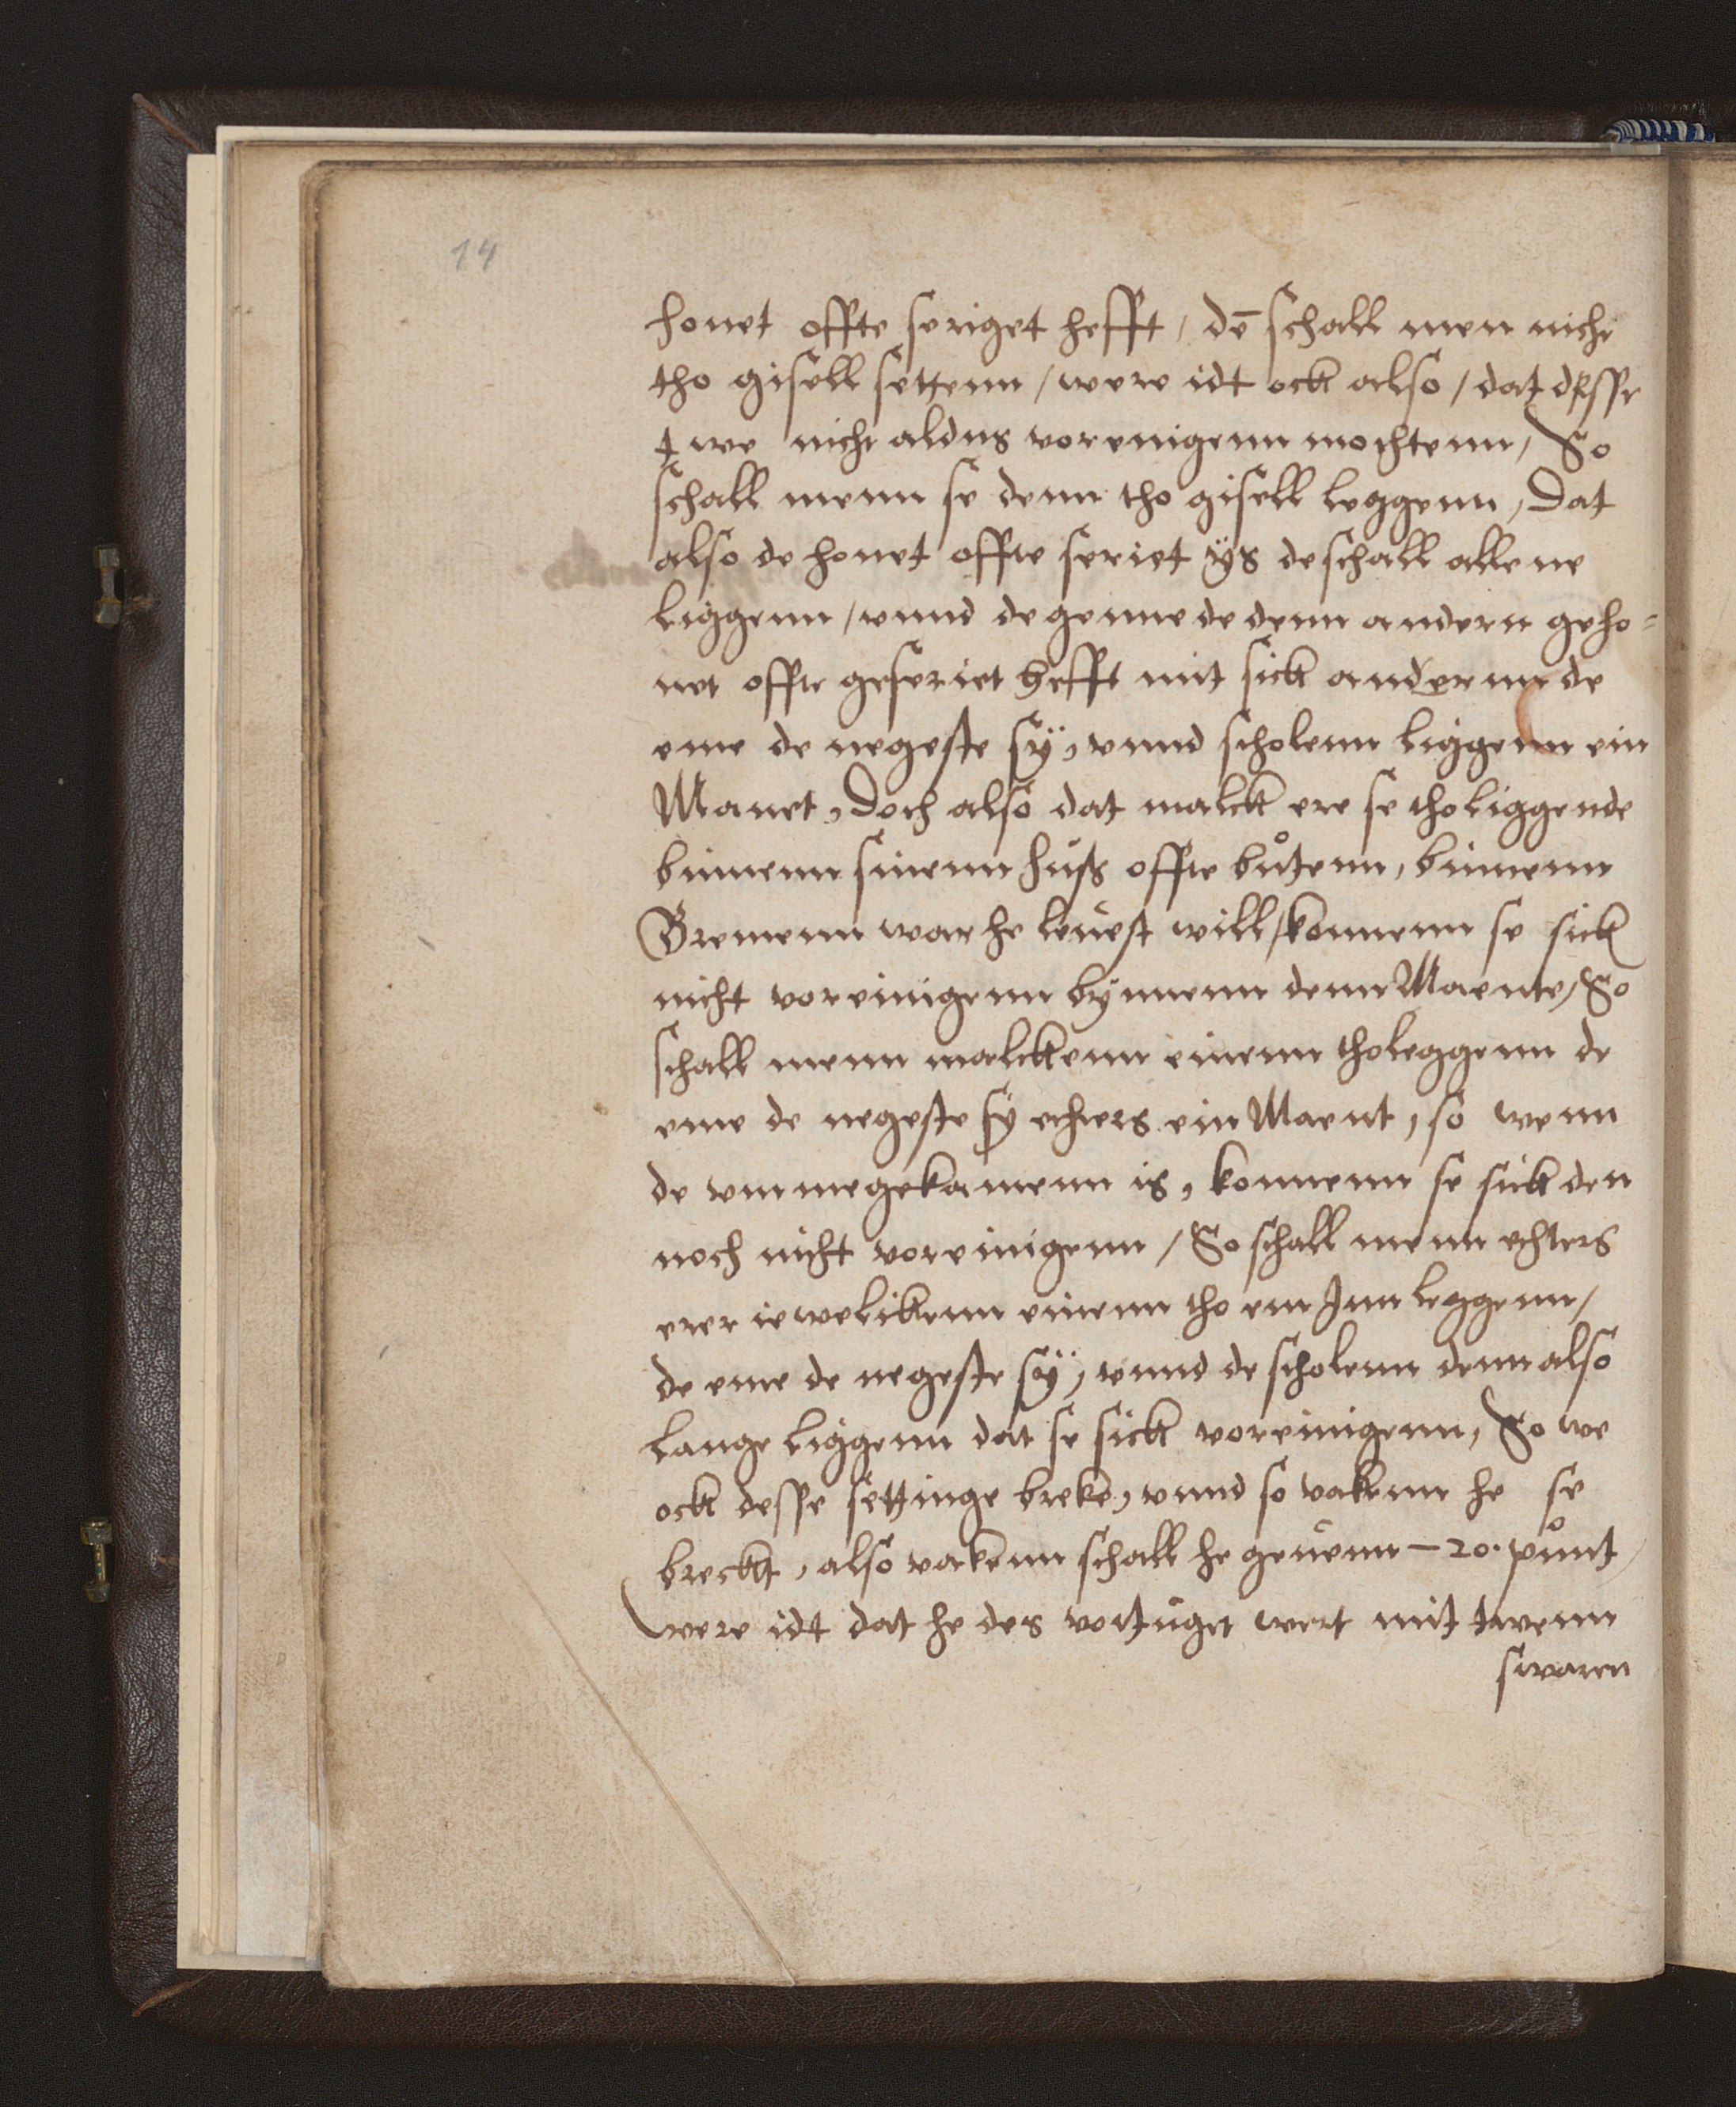 14
honet offte seriget hefft, dē schall men nicht
tho gisell settenn / were idt ock also / dat desse
twe nicht aldus vorenigenn mochtenn, So
schall menn se denn tho gisell leggenn, Dat
also de honet offte seriet ÿs de schall allene
liggenn / vnnd de genne de denn andern geho=
net offte geseriet hefft mit sick andernn de
eme de negeste sÿ, vnnd scholenn liggenn ein
Manet, Doch also dat malck ere se tho liggende
binnenn sinenn huß offte bůtenn, binnenn
Bremenn war he leuest will / konnenn se sick
nicht voreinigenn bÿnnenn denn Maente, So
schall menn malckenn einenn tho leggenn de
eme de negeste sÿ echters ein Maent, so wenn
de vmmegekamenn is, konnenn se sick den
noch nicht voreinigenn / So schall menn echters
erer iewelikenn einenn tho em Jnn leggenn /
de eme de negeste sÿ, vnnd de scholenn denn also
lange liggenn dat se sick voreinigenn, So we
ock desse settinge breke, vnnd so vakenn he se
breckt, also vakenn schall he geuenn – 20. půnt
were idt dat he des vortuget wert mit twenn
swaren